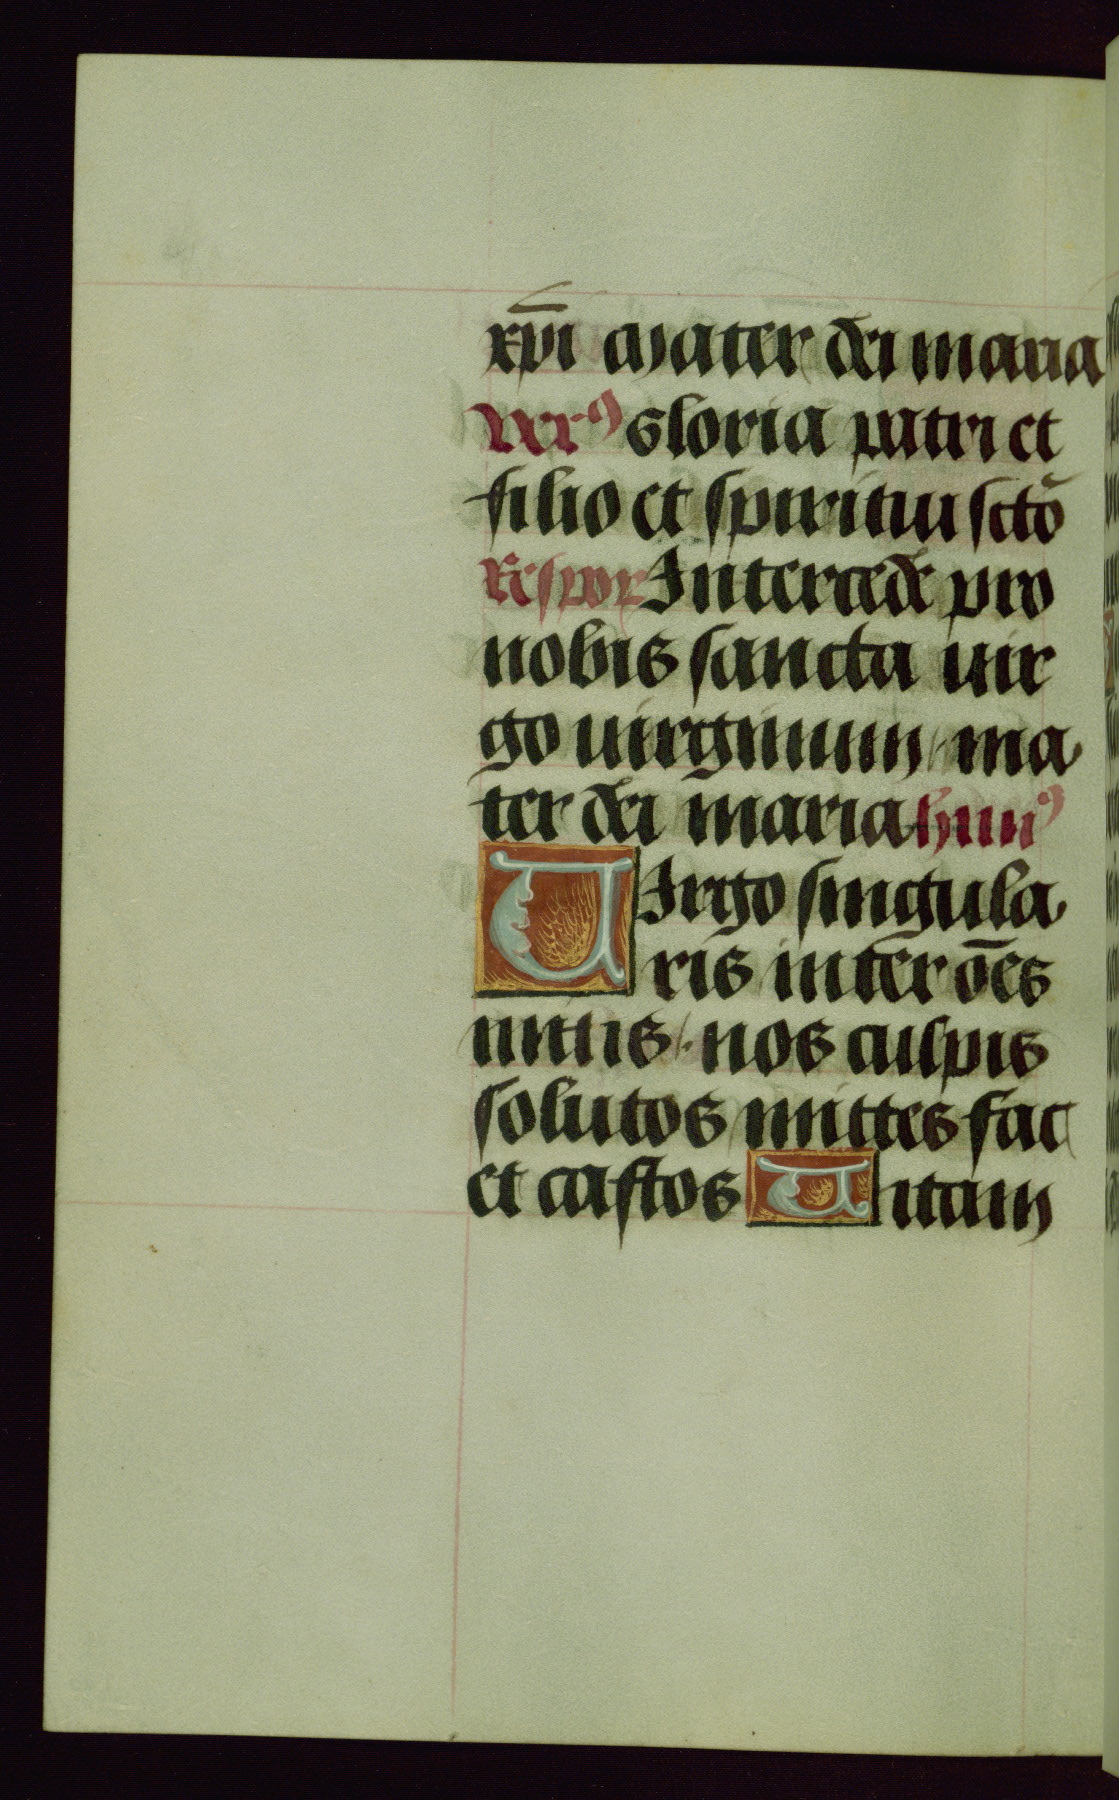 xp̄i Mater dei maria
Verꝰ Gloria patri et
filio et spiritui sctō
Respoꝝ Intercede pro
nobis sancta vir
go uirginum / ma
ter dei maria himꝰ
VIrgo singula
ris inter ōēs
mitis /. nos culpis
solutos mittes fac
et castos Vitam